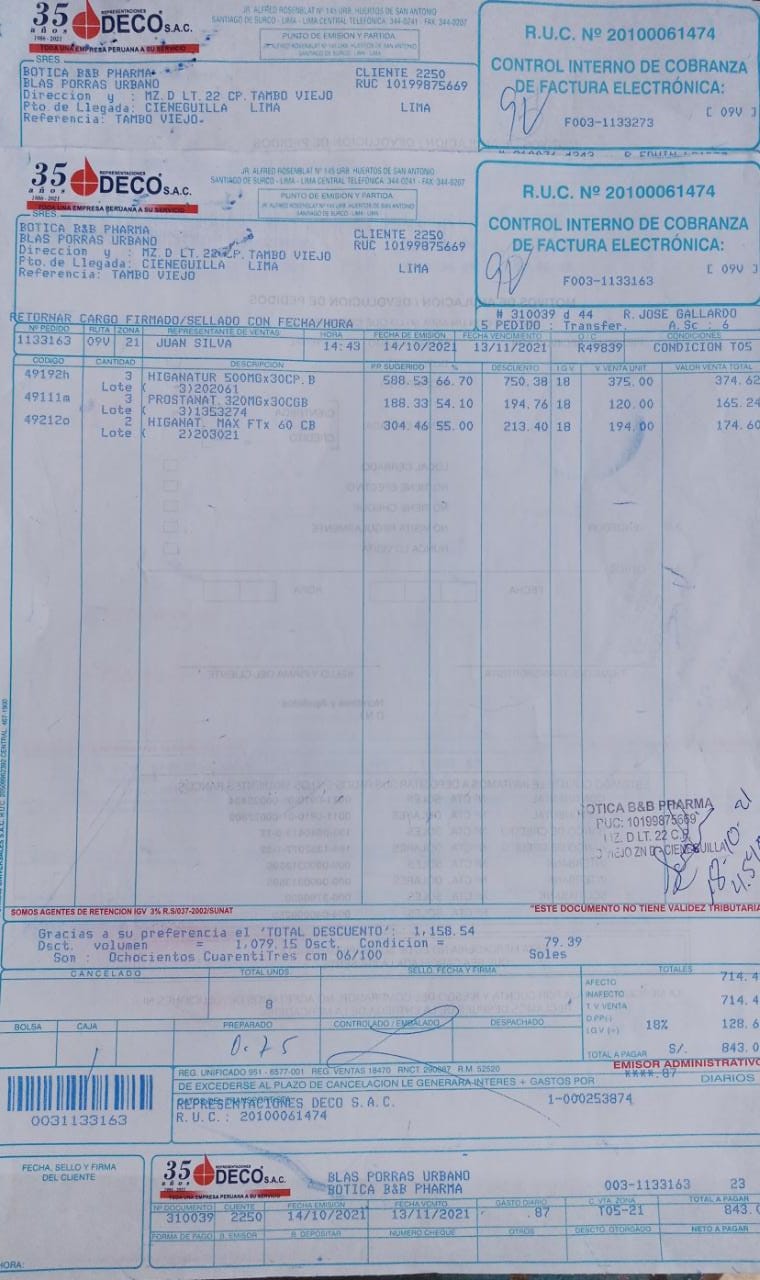 35 años
1986 - 2021
REPRESENTACIONES
DECO S.A.C.
TODA UNA EMPRESA PERUANA A SU SERVICIO
JR. ALFREDO ROSENBLAT Nº 145 URB. HUERTOS DE SAN ANTONIO
SANTIAGO DE SURCO - LIMA - LIMA CENTRAL TELEFÓNICA: 344-0241 - FAX: 344-0207
PUNTO DE EMISION Y PARTIDA
JR. ALFREDO ROSENBLAT Nº 145 URB. HUERTOS DE SAN ANTONIO
SANTIAGO DE SURCO - LIMA - LIMA
SRES.
BOTICA B&B PHARMA
BLAS PORRAS URBANO
Direccion y : MZ.D LT.22 CP.TAMBO VIEJO
Pto.de Llegada: CIENEGUILLA LIMA LIMA
Referencia: TAMBO VIEJO.
CLIENTE 2250
RUC 10199875669
R.U.C. Nº 20100061474
CONTROL INTERNO DE COBRANZA
DE FACTURA ELECTRÓNICA:
[ 09V ]
F003-1133273
35 años
1986 - 2021
REPRESENTACIONES
DECO S.A.C.
TODA UNA EMPRESA PERUANA A SU SERVICIO
JR. ALFREDO ROSENBLAT Nº 145 URB. HUERTOS DE SAN ANTONIO
SANTIAGO DE SURCO - LIMA - LIMA CENTRAL TELEFÓNICA: 344-0241 - FAX: 344-0207
PUNTO DE EMISION Y PARTIDA
JR. ALFREDO ROSENBLAT Nº 145 URB. HUERTOS DE SAN ANTONIO
SANTIAGO DE SURCO - LIMA - LIMA
SRES.
BOTICA B&B PHARMA
BLAS PORRAS URBANO
Direccion y : MZ.D LT.22 CP.TAMBO VIEJO
Pto.de Llegada: CIENEGUILLA LIMA LIMA
Referencia: TAMBO VIEJO
CLIENTE 2250
RUC 10199875669
R.U.C. Nº 20100061474
CONTROL INTERNO DE COBRANZA
DE FACTURA ELECTRÓNICA:
[ 09V ]
F003-1133163
RETORNAR CARGO FIRMADO/SELLADO CON FECHA/HORA
# 310039 d 44 R.JOSE GALLARDO
5 PEDIDO : Transfer. A.Sc : 6
Nº PEDIDO RUTA ZONA REPRESENTANTE DE VENTAS HORA FECHA DE EMISION FECHA VENCIMIENTO O/C CONDICIONES
1133163 09V 21 JUAN SILVA 14:43 14/10/2021 13/11/2021 R49839 CONDICION T05
CODIGO CANTIDAD DESCRIPCION P.P. SUGERIDO % DESCUENTO I.G.V V.VENTA UNIT VALOR VENTA TOTAL
49192h 3 HIGANATUR 500MGx30CP.B 588.53 66.70 750.38 18 375.00 374.62
Lote ( 3)202061
49111m 3 PROSTANAT.320MGx30CGB 188.33 54.10 194.76 18 120.00 165.24
Lote ( 3)1353274
49212o 2 HIGANAT. MAX FTx 60 CB 304.46 55.00 213.40 18 194.00 174.60
Lote ( 2)203021
BOTICA B&B PHARMA
RUC: 10199875669
MZ. D LT. 22 C.P.
18-10-21
SOMOS AGENTES DE RETENCION IGV 3% R.S/037-2002/SUNAT
"ESTE DOCUMENTO NO TIENE VALIDEZ TRIBUTARIA
Gracias a su preferencia el 'TOTAL DESCUENTO': 1,158.54
Dsct. volumen = 1,079.15 Dsct. Condicion = 79.39
Son : Ochocientos CuarentiTres con 06/100 Soles
CANCELADO TOTAL UNDS. SELLO, FECHA Y FIRMA TOTALES
8
AFECTO 714.4
INAFECTO
T. V VENTA 714.4
D.P.P.(-)
I.G.V (+) 18% 128.6
TOTAL A PAGAR S/. 843.0
BOLSA CAJA PREPARADO CONTROLADO / EMBALADO DESPACHADO
0.75
EMISOR ADMINISTRATIVO
****.87
DIARIOS
REG. UNIFICADO 951 - 6577-001 REG. VENTAS 18470 RNCT. 290887 R.M. 52520
DE EXCEDERSE AL PLAZO DE CANCELACION LE GENERARA INTERES + GASTOS POR
REPRESENTACIONES DECO S.A.C. 1-000253874
R.U.C.: 20100061474
0031133163
FECHA, SELLO Y FIRMA
DEL CLIENTE
HORA:
35 años
REPRESENTACIONES
DECO S.A.C.
TODA UNA EMPRESA PERUANA A SU SERVICIO
BLAS PORRAS URBANO
BOTICA B&B PHARMA
003-1133163 23
Nº DOCUMENTO CLIENTE FECHA EMISION FECHA VCMTO GASTO DIARIO C. VTA. ZONA TOTAL A PAGAR
310039 2250 14/10/2021 13/11/2021 .87 T05-21 843.0
FORMA DE PAGO B. EMISOR B. DEPOSITAR NUMERO CHEQUE OTROS DESCTO. OTORGADO NETO A PAGAR